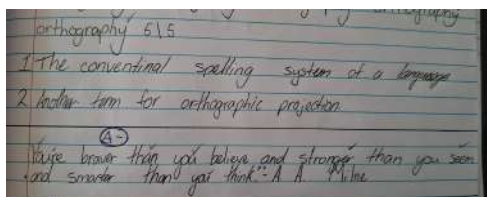 orthography
orthography 5|5
1 The conventinal spelling system of a language
2 Another term for orthographic projection
A-
You're braver than you believe and stronger than you seem
and smarter than you think." - A A. Milne